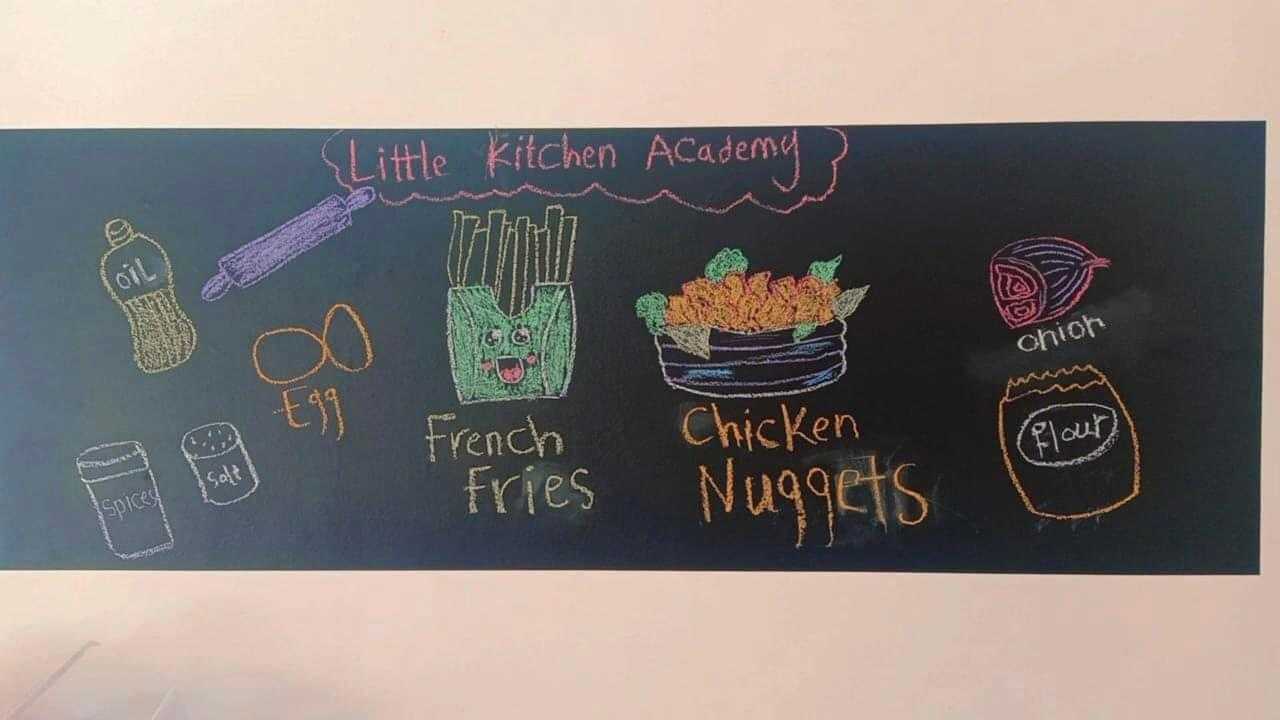 Little Kitchen Academy
OIL
Egg
Spices
Salt
French
Fries
Chicken
Nuggets
onion
flour